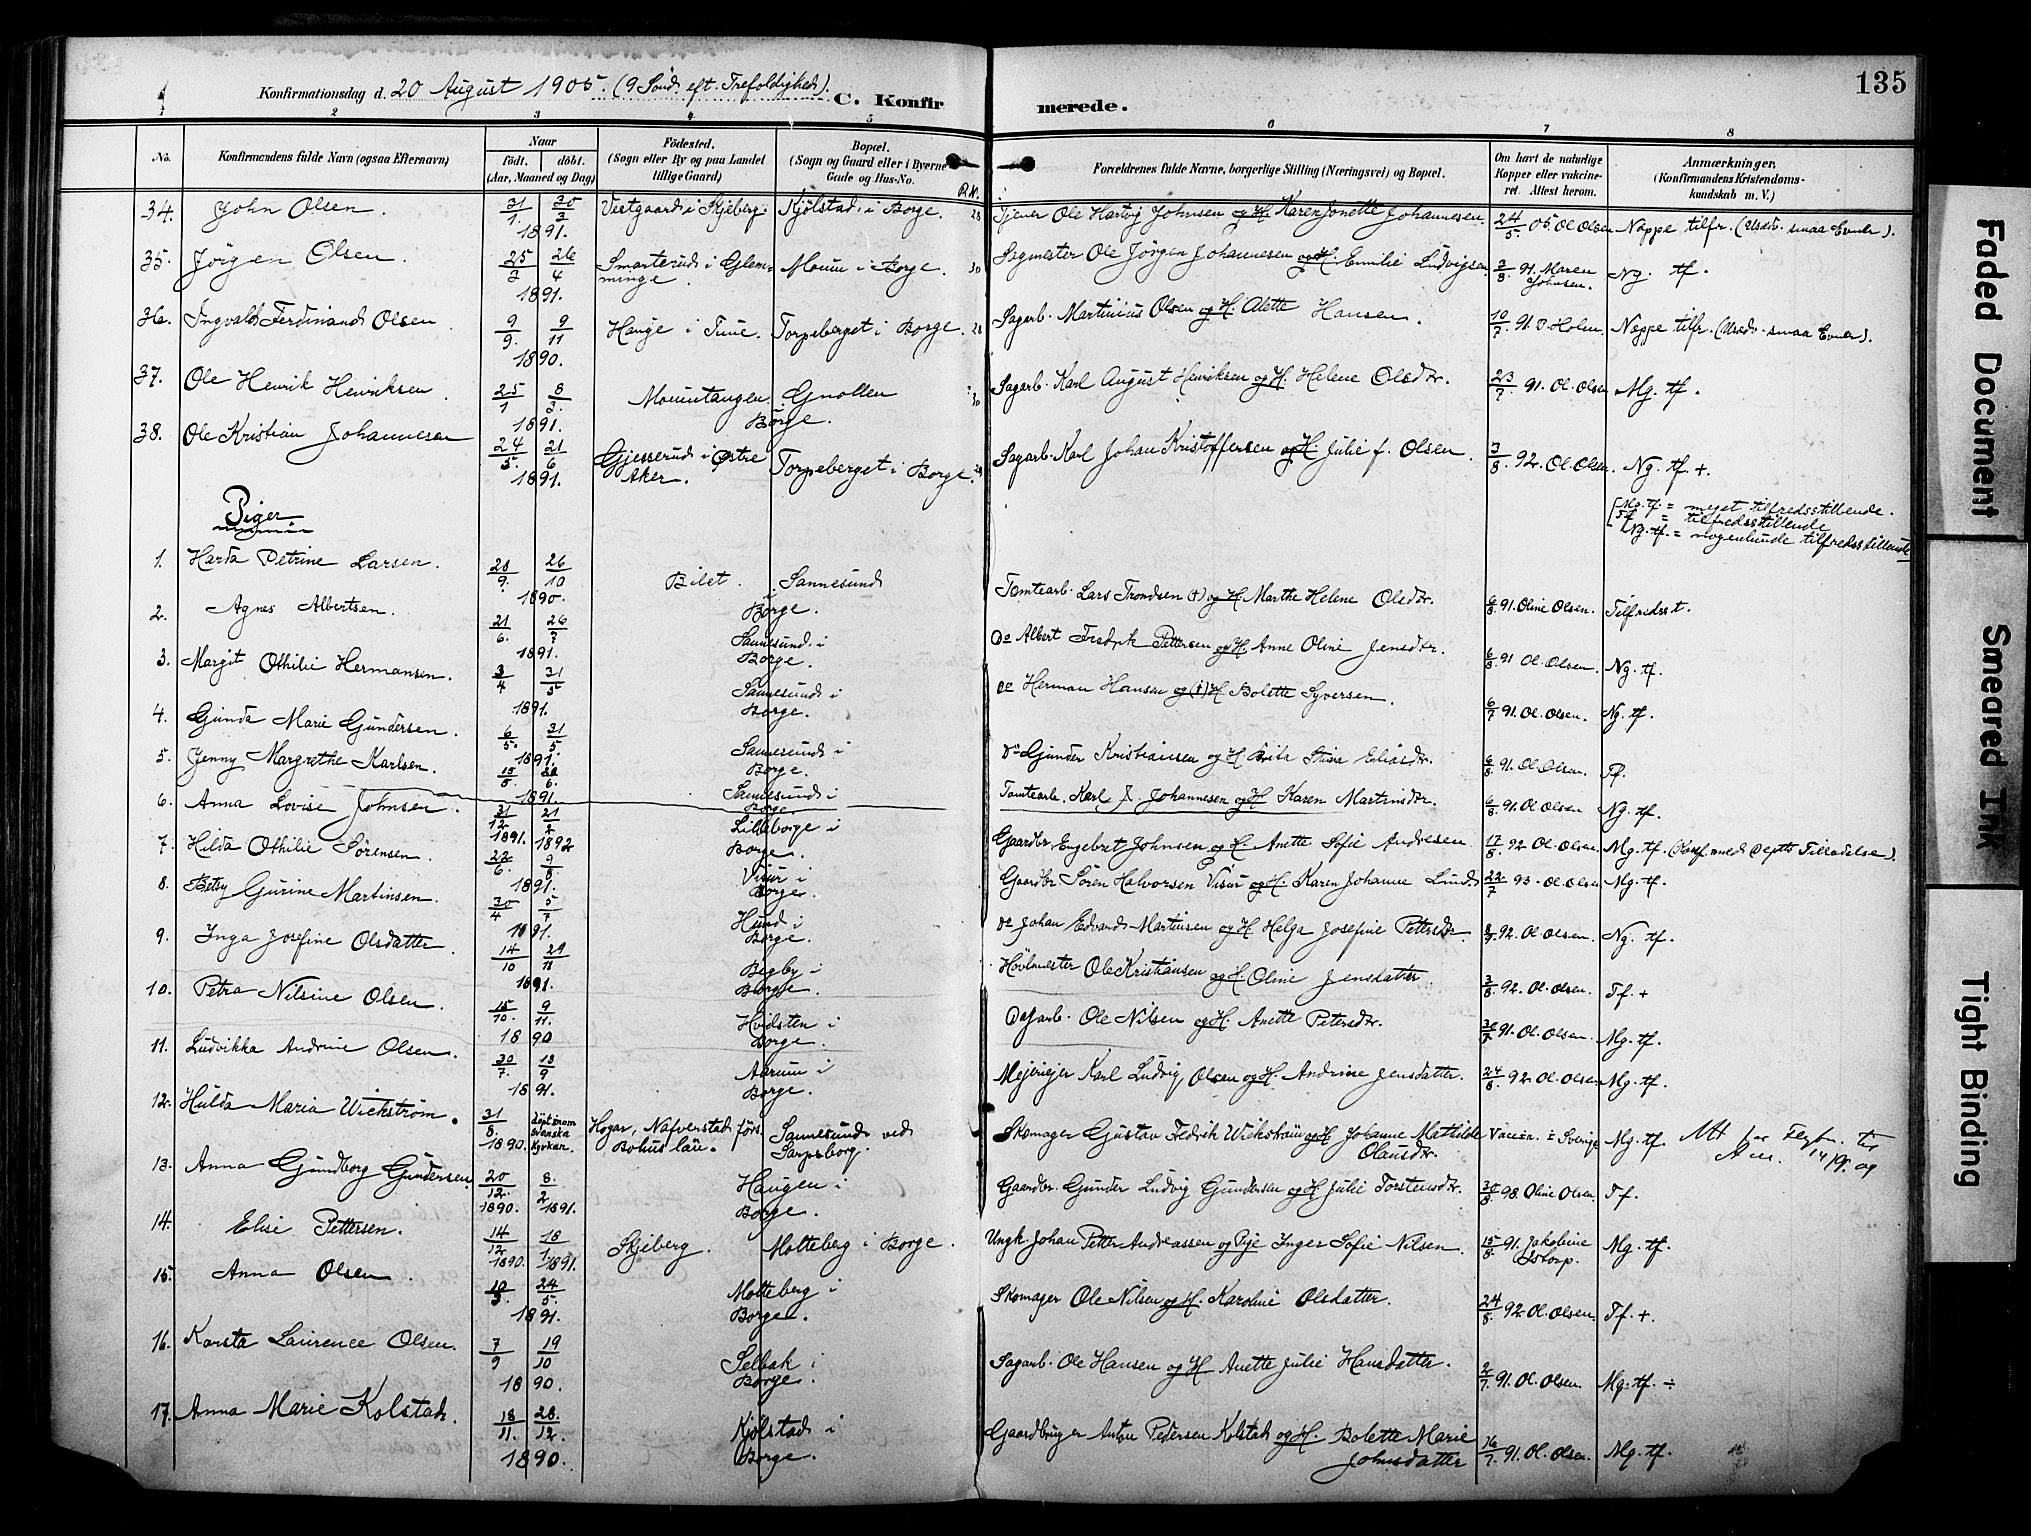 135
Konfirmationsdag d. 20 August 1905. (9 Sönd. eft. Trefoldighed). C. Konfirmerede.
1 2 3 4 5 6 7 8
No.
Konfirmandens fulde Navn (ogsaa Efternavn)
Naar
födt. döbt.
(Aar, Maaned og Dag)
Födested.
(Sogn eller By og paa Landet
tillige Gaard)
Bopæl.
(Sogn og Gaard eller i Byerne
Gade og Hus-No.
Forældrenes fulde Navne, borgerlige Stilling (Næringsvei) og Bopæl.
Om havt de naturlige
Kopper eller vakcine-
ret. Attest herom.
Anmærkninger.
(Konfirmandens Kristendoms-
kundskab m. V.)
34. John Olsen. 31/1. 30/3 1891. Vestgaard i Skjeberg. Kjölstad i Borge. 28 Tjener Ole Hartvig Johnsen og H. Karen Jonette Johannesen. 24/5. 05. Ol. Olsen Neppe tilfr. (Usædv. smaa Evner).
35. Jörgen Olsen. 25/3 26/4 1891. Smarterud i Glemminge. Moum i Borge. 30 Sagmester Ole Jörgen Johannesen og H. Emilie Ludvigsen. 3/8 91. Maren Johnsen. Ng. tf.
36. Ingvald Ferdinand Olsen. 9/9. 9/11 1890. Hauge i Tune. Torpeberget i Borge. 28 Sagarb. Martinius Olsen og H. Alette Hansen. 10/7 91. J. Holm. Neppe tilfr. (Usædv. smaa Evner).
37. Ole Henrik Henriksen. 25/1 8/3. 1891. Moumtangen. Gnollen Borge. 30 Sagarb. Karl August Henriksen og H. Helene Olsdtr. 23/7 91. Ol. Olsen Mg. tf.
38. Ole Kristian Johannesen 24/5. 21/6 1891. Gjesserud i Østre Aker. Torpeberget i Borge. Sagarb. Karl Johan Kristoffersen og H. Julie f. Olsen. 3/8 92. Ol. Olsen. Ng. tf. +.
Piger
[Mg. tf. = meget tilfredsstillende.
Tf = tilfredsstillende
Ng. tf. = nogenlunde tilfredsstillende
1. Harda Petrine Larsen. 28/9. 26/10 1890. Bilet. Sannesund i Borge. Tomtearb. Lars Trondsen (+) og H. Marthe Helene Olsdtr. 6/8 91. Oline Olsen. Tilfredsst.
2. Agnes Albertsen. 21/6. 26/7 1891. Sannesund i Borge. Do Albert Fredrik Pettersen og H. Anne Oline Jensdtr. 6/8 91 Ol. Olsen. Ng. tf.
3. Margit Othilie Hermansen. 3/4 31/5 1891. Sannesund i Borge. Do Herman Hansen og (+) H Bolette Syversen. 6/7 91. Ol. Olsen. Ng. tf.
4. Gunda Marie Gundersen. 6/5. 31/5 1891. Sannesund i Borge. Do Gunder Kristiansen og H. Brita Stina Eliasdtr. 6/8 91. Ol. Olsen. Tf.
5. Jenny Margrethe Karlsen. 15/5 28/6. 1891. Sannesund i Borge Tomtearb. Karl J. Johannesen og H Karen Martinsdtr. 6/8 91. Ol. Olsen Ng. tf.
6. Anna Lovise Johnsen. 31/12 1891. 21/2 1892 Lilleborge i Borge. Gaardbr. Engebret Johnsen og H. Anette Sofie Andresen. 17/8 92. Ol. Olsen. Mg. tf. (Konf. med Depts Tilladelse).
7. Hilda Othilie Sørensen. 22/6. 9/8 1891. Visur i Borge. Gaardbr Sören Halvorsen Visur og H. Karen Johanne Lund. 22/7 93. Ol. Olsen Mg. tf.
8. Betsy Gurine Martinsen. 30/4 5/7 1891. Hund i Borge. Do Johan Edvard Martinsen og H. Helga Josefine Pettersdtr. 92. Ol. Olsen. Ng. tf.
9. Inga Josefine Olsdatter. 14/10 29/11 1891. Begby i Borge. Høvlmester Ole Kristiansen og H. Oline Jensdatter 3/8 92. Ol. Olsen. Tf. +
10. Petra Nilsine Olsen. 15/10. 9/11. 1890 Hvidsten i Borge. Dagarb. Ole Nilsen og H. Anette Petersdtr. 30/7 91. Ol. Olsen. Mg. tf.
11. Ludvikka Andrine Olsen. 30/7. 13/9 1891. Aarum i Borge. Mejeriejer Karl Ludvig Olsen og H. Andrine Jensdatter. 24/8. 92. Ol. Olsen Mg. tf.
12. Hulda Maria Wickström. 31/8. 1890. döpt inom svenska kyrkan. Hogar, Nafverstad förs. Bohuslän. Sannesund ved Sarpsborg. Skomager Gustav Fredrik Wickström og H. Johanne Mathilde Olausdtr. Vaccin. i Sverige Mg. tf.
13. Anna Gundborg Gundersen. 20/12. 1890. 8./2 1891. Haugen i Borge. Gaardbr. Gunder Ludvig Gundersen og H. Julie Torstensdtr. 30/8 98. Oline Olsen. Tf.
14. Elise Pettersen. 14/12 1890. 18/1. 1891. Skjeberg. Molteberg i Borge. Ungk. Johan Petter Andreassen og Pige Inger Sofie Nilsen. 15/8. 91. Jakobine Mg. tf.
15. Anna Olsen. 10/3. 24/5. 1891. Molteberg i Borge. Skomager Ole Nilsen og H. Karoline Olsdatter. 24/8. 92. Ol. Olsen. Tf. +.
16. Karsta Laurence Olsen. 7/9 19/10 1890. Selbak i Borge. Sagarb. Ole Hansen og H Anette Julie Hansdatter. 2/7. 91. Ol. Olsen. Mg. tf. ÷
17. Anna Marie Kolstad. 18/11. 28./12. 1890. Kjölstad i Borge. Gaardbruger Anton Pedersen Kolstad og H. Bolette Marie Johnsdatter 16/7 91. Ol. Olsen. Mg. tf.
Faded Document
Smeared Ink
Tight Binding